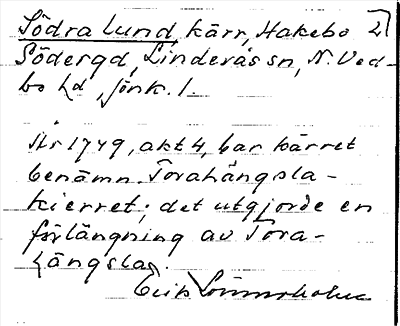 Södra Lund, kärr, Hakebo 2)
Södergd, Linderås sn, N. Ved-
bo hd, Jönk. l.
År 1749, akt 4, bar kärret
benämn. Torahängsla-
kierret; det utgjorde en
förlängning av Tora-
hängslan.
Erik